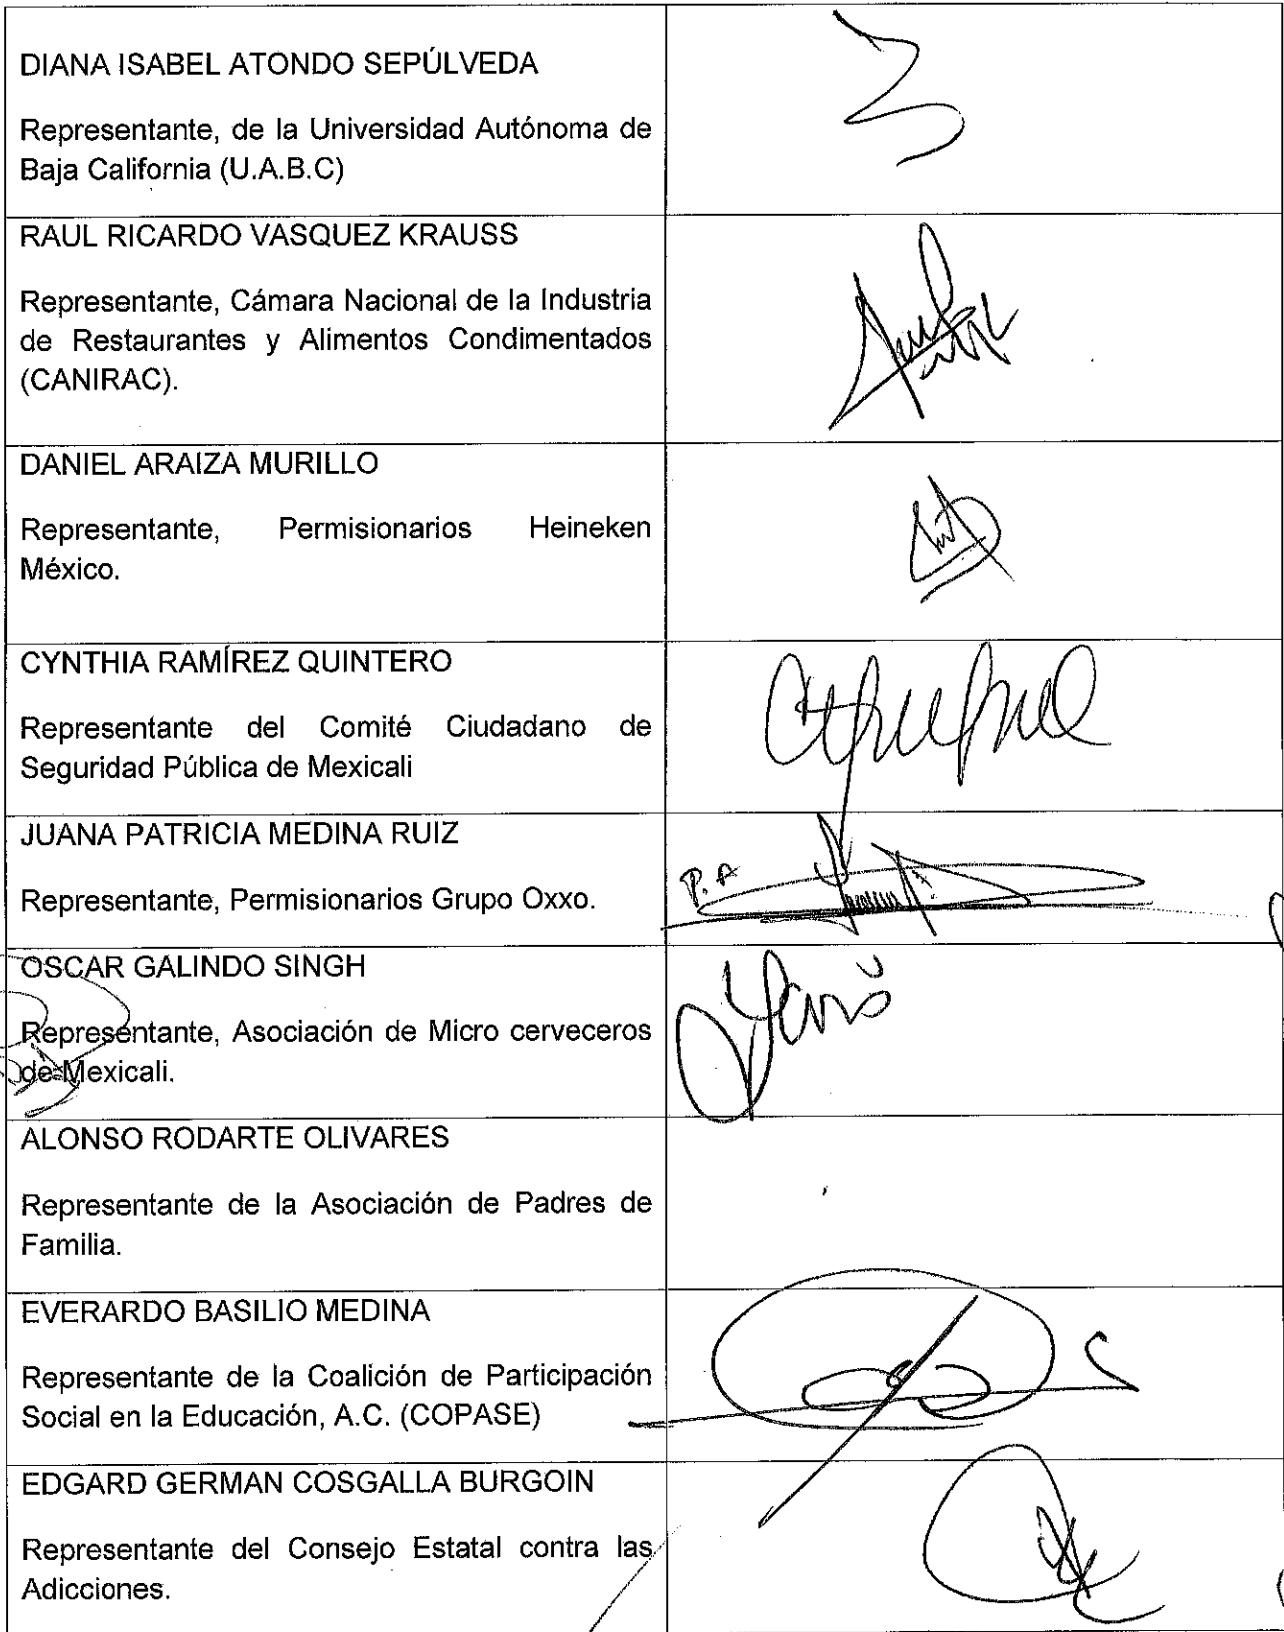 DIANA ISABEL ATONDO SEPÚLVEDA
Representante, de la Universidad Autónoma de
Baja California (U.A.B.C)
RAUL RICARDO VASQUEZ KRAUSS
Representante, Cámara Nacional de la Industria
de Restaurantes y Alimentos Condimentados
(CANIRAC).
DANIEL ARAIZA MURILLO
Representante, Permisionarios Heineken
México.
CYNTHIA RAMÍREZ QUINTERO
Representante del Comité Ciudadano de
Seguridad Pública de Mexicali
JUANA PATRICIA MEDINA RUIZ
P.A
Representante, Permisionarios Grupo Oxxo.
OSCAR GALINDO SINGH
Representante, Asociación de Micro cerveceros
de Mexicali.
ALONSO RODARTE OLIVARES
Representante de la Asociación de Padres de
Familia.
EVERARDO BASILIO MEDINA
Representante de la Coalición de Participación
Social en la Educación, A.C. (COPASE)
EDGARD GERMAN COSGALLA BURGOIN
Representante del Consejo Estatal contra las
Adicciones.